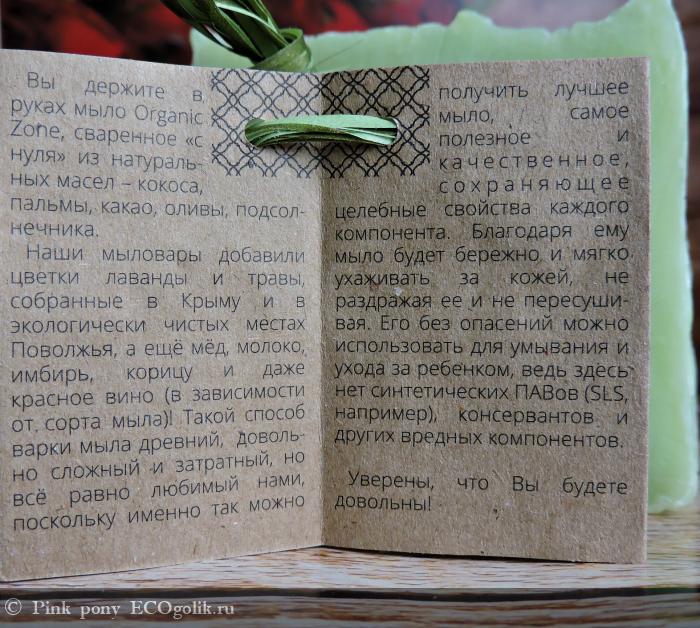 Вы держите в
руках мыло Organic
Zone, сваренное «с
нуля» из натураль-
ных масел – кокоса,
пальмы, какао, оливы, подсол-
нечника.
Наши мыловары добавили
цветки лаванды и травы,
собранные в Крыму и в
экологически чистых местах
Поволжья, а ещё мёд, молоко,
имбирь, корицу и даже
красное вино (в зависимости
от сорта мыла)! Такой способ
варки мыла древний, доволь-
но сложный и затратный, но
всё равно любимый нами,
поскольку именно так можно
получить лучшее
мыло, самое
полезное и
качественное,
сохраняющее
целебные свойства каждого
компонента. Благодаря ему
мыло будет бережно и мягко
ухаживать за кожей, не
раздражая ее и не пересуши-
вая. Его без опасений можно
использовать для умывания и
ухода за ребенком, ведь здесь
нет синтетических ПАВов (SLS,
например), консервантов и
других вредных компонентов.
Уверены, что Вы будете
довольны!
© Pink pony ECOgolik.ru